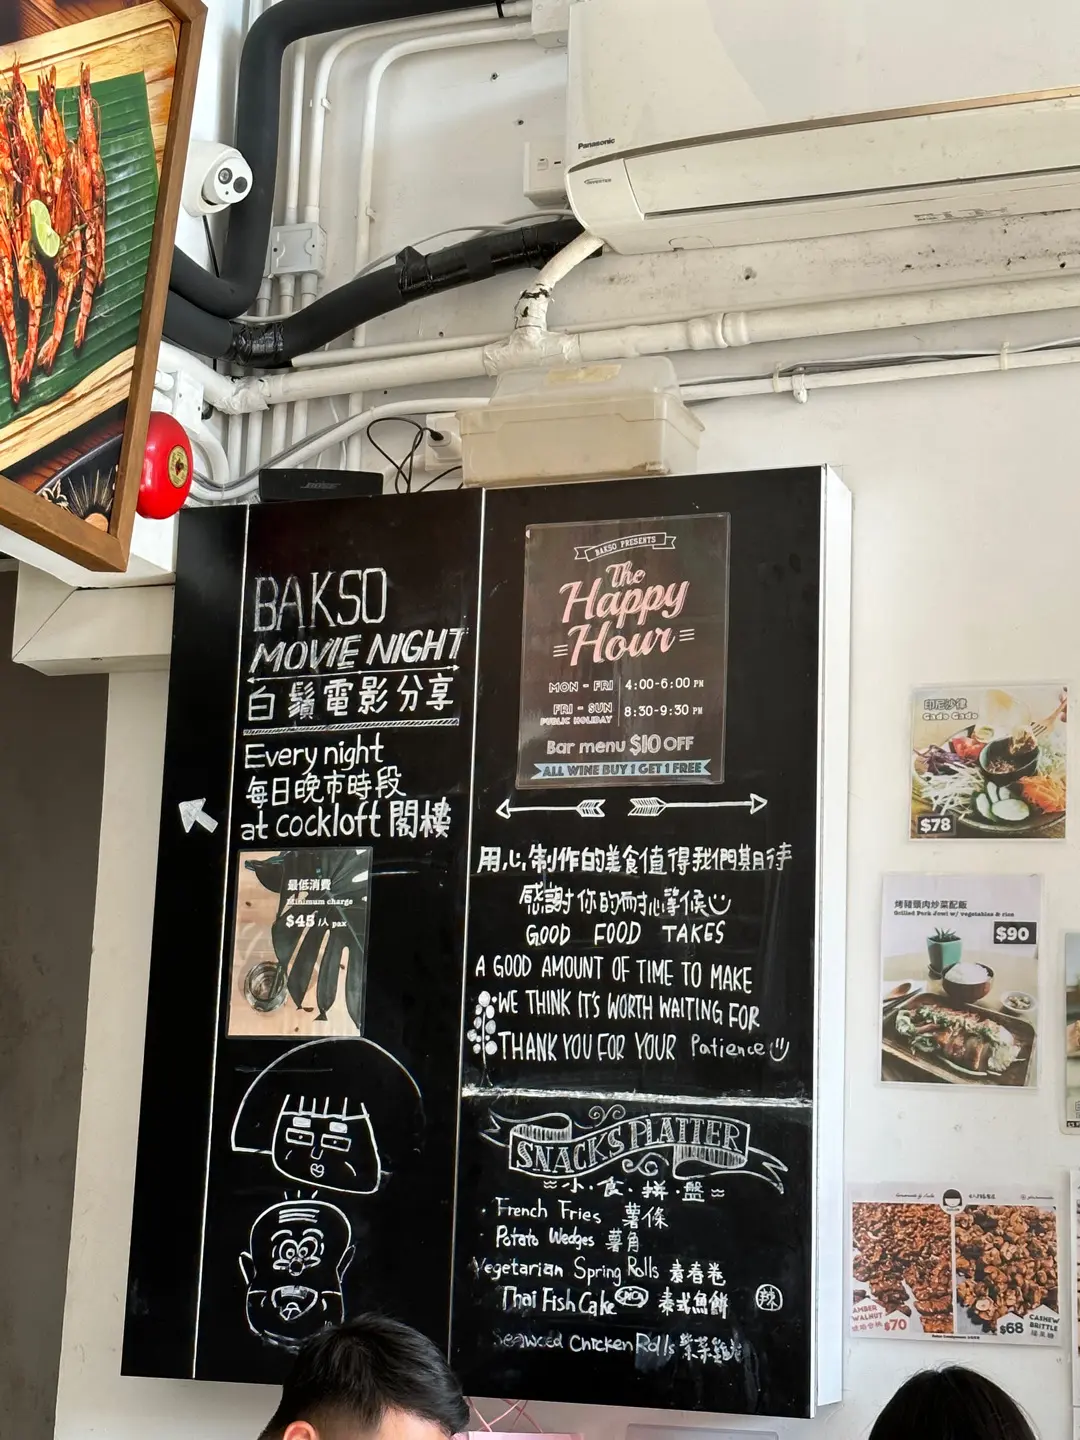 Panasonic
INVERTER
BAKSO
MOVIE NIGHT
白鬚電影分享
Every night
每日晚市時段
at cockloft 閣樓
最低消費
Minimum charge
$48 /人 pax
BAKSO PRESENTS
The
Happy
Hour
MON - FRI 4:00-6:00 PM
FRI - SUN
PUBLIC HOLIDAY 8:30-9:30 PM
Bar menu $10 OFF
ALL WINE BUY 1 GET 1 FREE
用心制作的美食值得我們期待
感謝你的耐心等候
GOOD FOOD TAKES
A GOOD AMOUNT OF TIME TO MAKE
WE THINK IT'S WORTH WAITING FOR
THANK YOU FOR YOUR Patience
SNACKS PLATTER
小.食.拼.盤
French Fries 薯條
Potato Wedges 薯角
Vegetarian Spring Rolls 素春卷
Thai Fish Cake 泰式魚餅 辣
Seaweed Chicken Rolls 紫菜雞
印尼沙律
Gado Gado
$78
烤豬頸肉炒菜配飯
Grilled Pork Jowl w/ vegetables & rice
$90
AMBER
WALNUT
$70
$68
CASHEW
BRITTLE